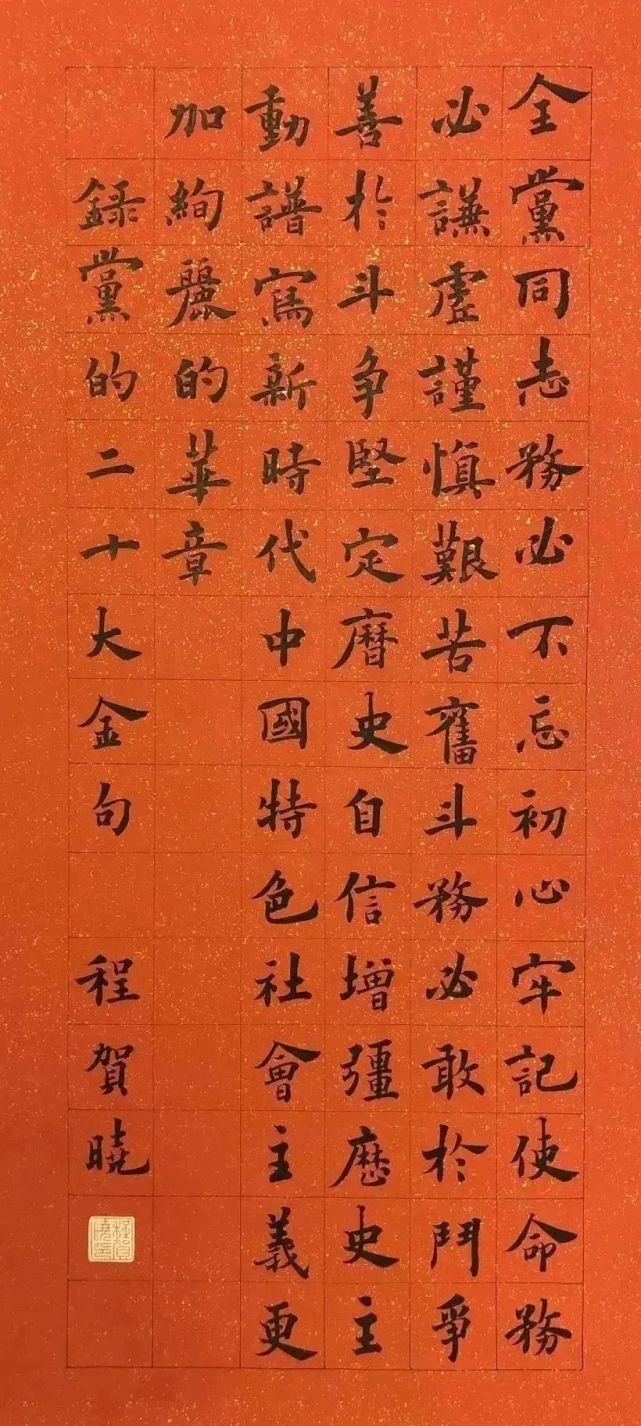 全黨同志務必不忘初心牢記使命務
必謙虛謹慎艱苦奮斗務必敢於鬥爭
善於斗争堅定曆史自信增彊歷史主
動譜寫新時代中國特色社會主義更
加絢麗的華章
録黨的二十大金句 程賀曉